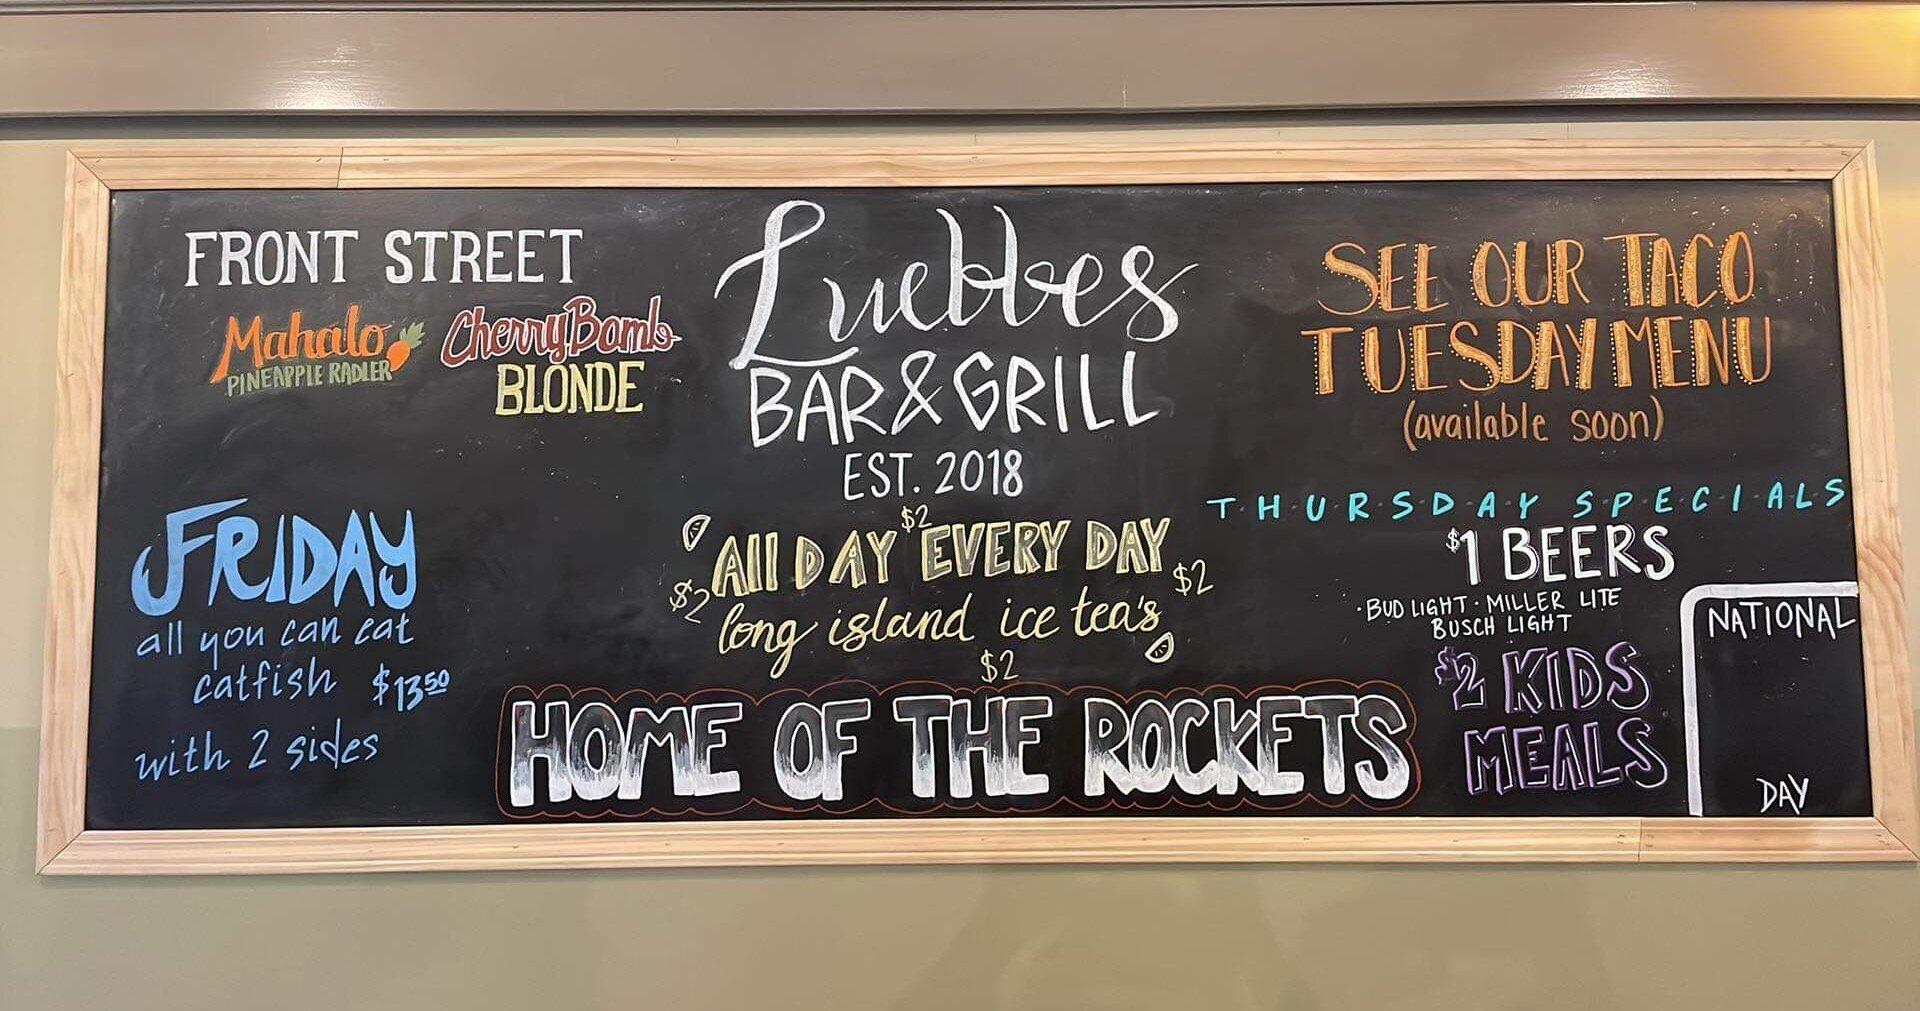 FRONT STREET
Mahalo
PINEAPPLE RADLER
CherryBomb
BLONDE
Luebbes
BAR & GRILL
EST. 2018
SEE OUR TACO
TUESDAY MENU
(available soon)
FRIDAY
all you can eat
catfish $13.50
with 2 sides
$2
All DAY EVERY DAY
$2 $2
long island ice tea's
$2
HOME OF THE ROCKETS
T·H·U·R·S·D·A·Y S·P·E·C·I·A·L·S
$1 BEERS
·BUD LIGHT · MILLER LITE
BUSCH LIGHT
$2 KIDS
MEALS
NATIONAL
DAY